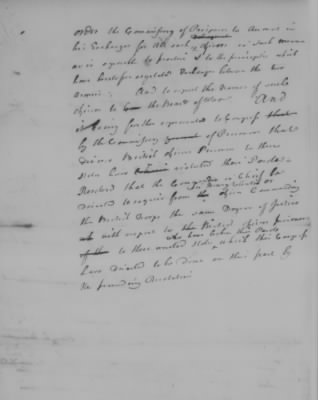 order the Commissary of Prisoners to demand in
his Exchanges for all such officers in such manner
as is agreeable to practice & to the principles which
have heretofore regulated Exchanges between the two
Armies; And to report the Names of such
officers to the Board of War. And
it being further represented to Congress that
by the Commissary of Prisoners that
divers British officers Prisoners to these
States have violated their Parole
Resolved that the Commander in Chief be
directed to require from the officer Commanding
the British Troops the same Degree of Justice
with respect to the British officers prisoners
of the to these united States who have broken their Parole which this Congress
have directed to be done on their part by
the preceding Resolution